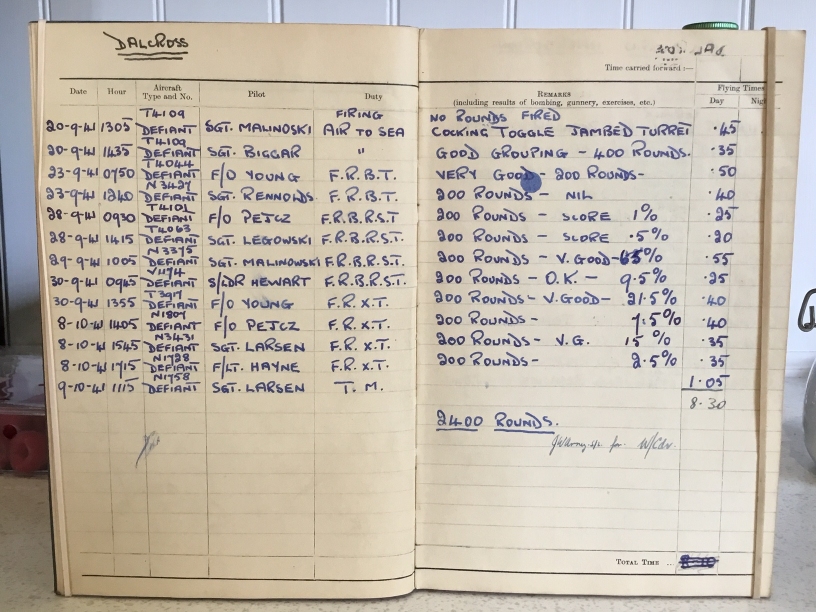 DALCROSS
Time carried forward:—
Date Hour Aircraft Type and No. Pilot Duty REMARKS (including results of bombing, gunnery, exercises, etc.) Flying Times Day Nig
T4109 FIRING NO ROUNDS FIRED
20-9-41 1305 DEFIANT SGT. MALINOSKI AIR TO SEA COCKING TOGGLE JAMBED TURRET .45
T4109
20-9-41 1435 DEFIANT SGT. BIGGAR " GOOD GROUPING - 400 ROUNDS. .35
T4044
23-9-41 0750 DEFIANT F/O YOUNG F.R.B.T. VERY GOOD - 200 ROUNDS- .50
N3427
23-9-41 1240 DEFIANT SGT. RENNOLDS F.R.B.T. 200 ROUNDS - NIL .40
T4101
28-9-41 0930 DEFIANT F/O PETCZ F.R.B.R.S.T 200 ROUNDS - SCORE 1% .25
T4063
28-9-41 1415 DEFIANT SGT. LEGOWSKI F.R.B.R.S.T. 200 ROUNDS - SCORE .5% .20
N3375
29-9-41 1005 DEFIANT SGT. MALINOWSKI F.R.B.R.S.T. 200 ROUNDS - V.GOOD- % .55
V1174
30-9-41 0945 DEFIANT S/LDR HEWART F.R.B.R.S.T. 200 ROUNDS - O.K. - 9.5% .25
30-9-41 1355 DEFIANT F/O YOUNG F.R.X.T. 200 ROUNDS- V.GOOD- 21.5% .40
N1807
8-10-41 1405 DEFIANT F/O PETCZ F.R.X.T. 200 ROUNDS - 7.5% .40
N3431
8-10-41 1545 DEFIANT SGT. LARSEN F.R.X.T. 200 ROUNDS - V.G. 15% .35
N1728
8-10-41 1715 DEFIANT F/LT. HAYNE F.R.X.T. 200 ROUNDS- 2.5% .35
N1758
9-10-41 1115 DEFIANT SGT. LARSEN T.M. 1.05
8.30
2400 ROUNDS.
for W/Cdr.
TOTAL TIME ..